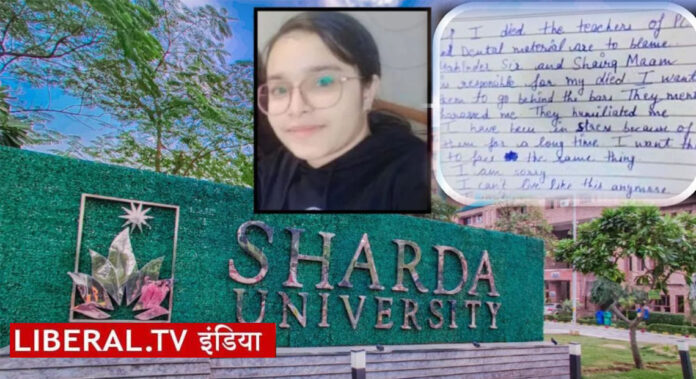 I died the teachers of
Dental material are to blame
Sir and Maam
responsible for my died I want
to go behind the bars They
me They humiliated me
I have been in stress because of
them for a long time I want
to face the same thing
I am sorry
I can't live like this anymore
SHARDA
UNIVERSITY
LIBERAL.TV इंडिया